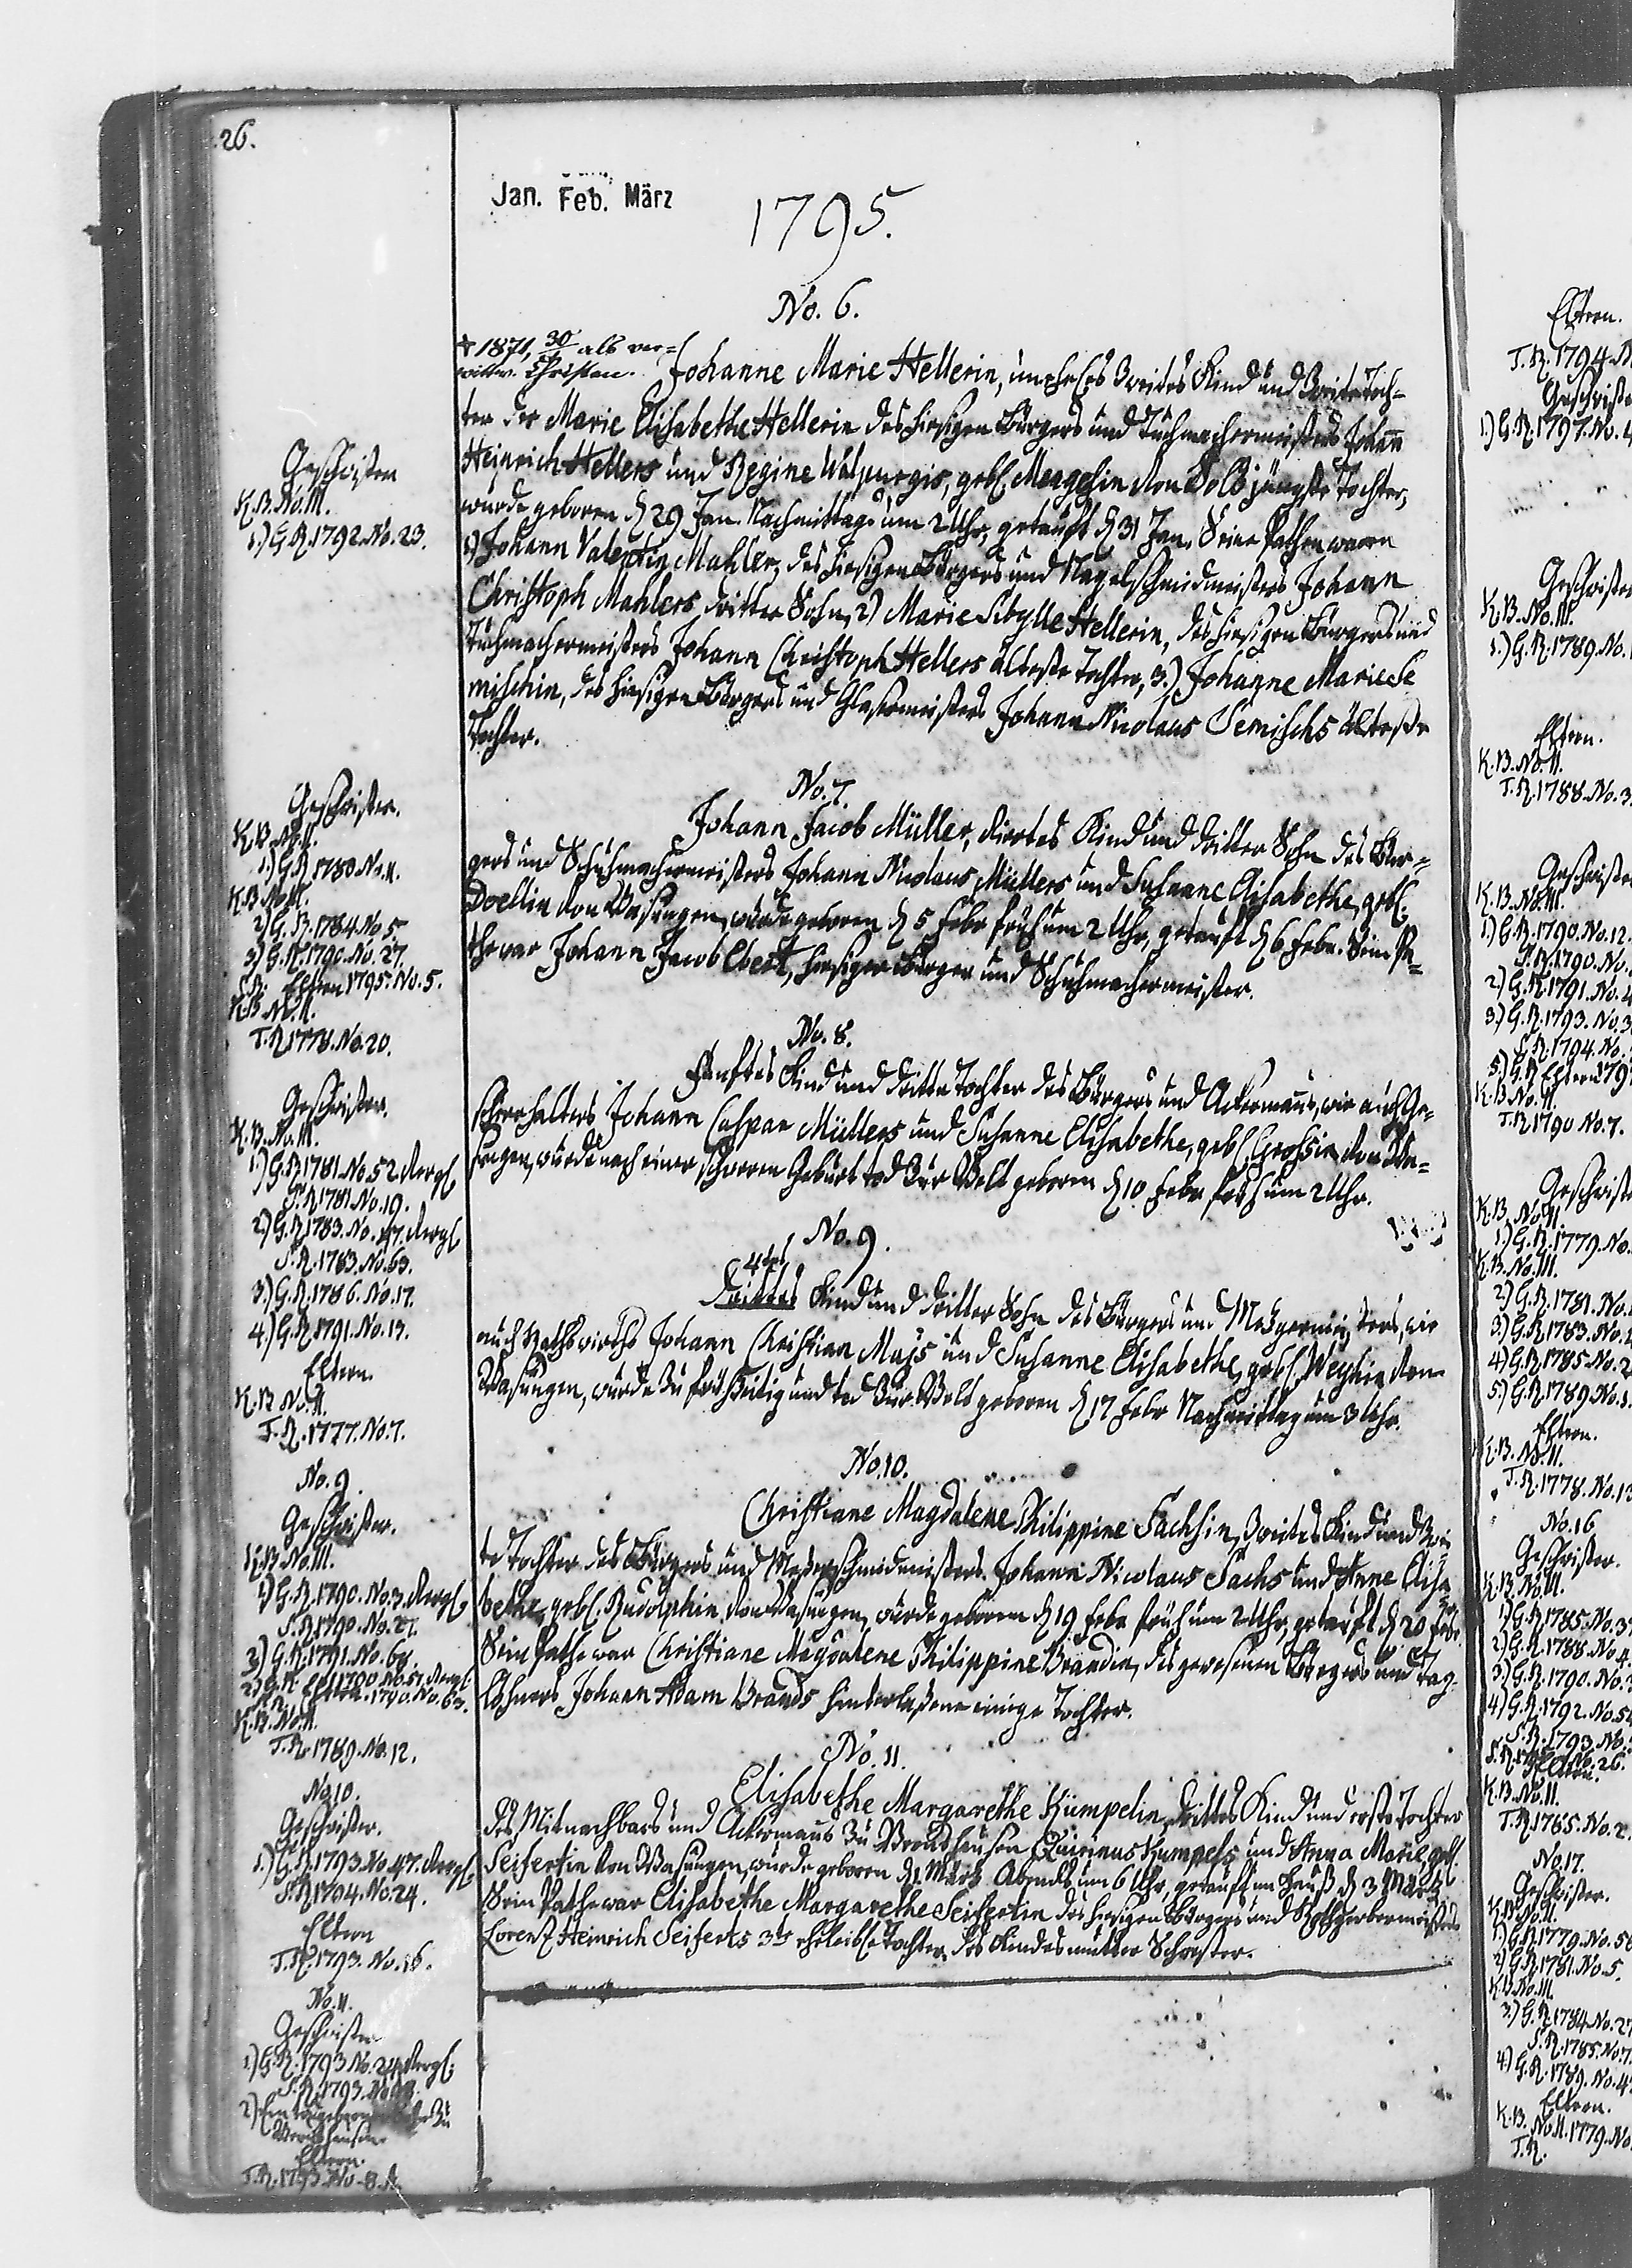 26.
Jan. Feb. März
1795.
No. 6.
† 1871, 30/ als ver=
wittw. Christen. Johanne Marie Hellerin, unehel[iche]s zweites Kind und zweite Toch=
ter der Marie Elisabethe Hellerin des hiesigen Bürgers und Tuchmachermeisters Johann
Heinrich Hellers und Regine Walpurgis, gebl. Mengelin von jüngste Tochter,
wurde geboren d 29 Jan. Nachmittags um 2 Uhr, getauft d 31 Jan. Seine Pathen waren
1) Johann Valentin Mahler, des hiesigen Bürgers und Nagelschmidmeisters Johann
Christoph Mahlers dritter Sohn, 2) Marie Sibylle Hellerin, des hiesigen Bürgers und
Tuchmachermeisters Johann Christoph Hellers älteste Tochter, 3.) Johanne Marie Se
mischin, des hiesigen Bürgers und Glasermeisters Johann Nicolaus Semischs älteste
Tochter.
No. 7.
Johann Jacob Müller, viertes Kind und dritter Sohn des Bür=
gers und Schuhmachermeisters Johann Nicolaus Müllers und Susanne Elisabethe, gebl.
Doellin von Wasungen, wurde geboren d 5 Febr früh um 2 Uhr, getauft d 6 Febr. Sein Pa=
the war Johann Jacob Ebert, hiesiger Bürger und Schuhmachermeister.
No. 8.
Fünftes Kind und dritte Tochter des Bürgers und Ackermanns, wie auch Ge=
halters Johann Caspar Müllers und Susanne Elisabethe, gebl. Grossin von Wa=
sungen, wurde nach einer schweren Geburt tod zur Welt geboren d 10 Febr früh um 2 Uhr.
No. 9.
4tes
Drittes Kind und dritter Sohn des Bürgers und Metzgermeisters, wie
auch Rathswirths Johann Christian Majs und Susanne Elisabethe, gebl. Weyhin von
Wasungen, wurde zu frühzeitig und tod zur Welt geboren d 17 Febr Nachmittag um 3 Uhr.
No. 10.
Christiane Magdalene Philippine Sachsin, zweites Kind und zwei=
te Tochter des Bürgers und Messerschmidmeisters Johann Nicolaus Sachs und Anne Elisa=
bethe, gebl. Rudolphin von Wasungen, wurde geboren d 19 Febr früh um 2 Uhr, getauft d 20 Febr.
Sein Pathe war Christiane Magdalene Philippine Brandin, des gewesenen Bürgers und Tag=
löhners Johann Adam Brands hinterlaßene einige Tochter.
No. 11.
Elisabethe Margarethe Kümpelin, drittes Kind und erste Tochter
des Mitnachbars und Ackermanns zu Quirinus Kümpels und Anna Marie, gebl.
Seifertin von Wasungen, wurde geboren d 1 März Abends um 6 Uhr, getauft im Hauß d 3 März
Sein Pathe war Elisabethe Margarethe Seifertin des hiesigen Bürgers und Rothgerbermeisters
Lorenz Heinrich Seiferts 3te eheleibl. Tochter, des Kindes mutter Schwester.
Geschwister
K. B. No. III.
1.) G. R. 1792. No. 23.
Geschwister.
K. B. No. II.
1.) G. R. 1780. No. 11.
K. B. No. III.
2) G. R. 1784. No. 5.
3) G. R. 1790. No. 27.
S. R. Eltern 1795. No. 5.
K. B. No. II.
T. R. 1778. No. 20.
Geschwister.
K. B. No. III.
1.) G. R. 1781. No. 52. Vergl.
S. R. 1781. No. 19.
2.) G. R. 1783. No. 47. Vergl.
S. R. 1783. No. 63.
3.) G. R. 1786. No. 17.
4.) G. R. 1791. No. 13.
Eltern.
K. B. No. II.
T. R. 1777. No. 7.
No. 9.
Geschwister.
K. B. No. III.
1.) G. R. 1790. No. 3. Vergl.
S. R. 1790. No. 27.
3.) G. R. 1791. No. 68.
2.) G. R. 1790. No. 51. Vergl.
S. R. Eltern. 1790. No. 63.
K. B. No. II.
T. R. 1789. No. 12.
No. 10.
Geschwister.
1.) G. R. 1793. No. 47. Vergl.
S. R. 1794. No. 24.
Eltern
T. R. 1793. No. 16.
No. 11.
Geschwister
1.) G. R. 1793. No. 24. Vergl.
S. R. 1793. No.
2) Ein zu
Eltern.
T. R. 1793. No. 8.
Eltern.
T. R. 1794. N
Geschwiste
1.) G. R. 1797. No. 4
Geschwister
K. B. No. III.
1.) G. R. 1789. No.
Eltern.
K. B. No. II.
T. R. 1788. No. 3.
Geschwiste
K. B. No. III.
1.) G. R. 1790. No. 12.
S. R. 1790. No.
2.) G. R. 1791. No. 4
3.) G. R. 1793. No. 3
S. R. 1794. No.
5.) G. R. Eltern 179
K. B. No. II.
T. R. 1790 No. 7.
Geschwist
K. B. No. II.
1.) G. R. 1779. No.
K. B. No. III.
2.) G. R. 1781. No.
3.) G. R. 1783. No.
4.) G. R. 1785. No. 2
5.) G. R. 1789. No. 1.
Eltern.
K. B. No. II.
T. R. 1778. No. 13
No. 16
Geschwister.
K. B. No. III.
1.) G. R. 1785. No. 37
2.) G. R. 1788. No. 4.
3.) G. R. 1790. No. 3
4.) G. R. 1792. No. 54
S. R. 1793. No.
Eltern. No. 26.
K. B. No. II.
T. R. 1785. No. 2.
No. 17.
Geschwister.
K. B. No. II.
1.) G. R. 1779. No. 56
2.) G. R. 1781. No. 5.
K. B. No. III.
3.) G. R. 1784. No. 27
S. R. 1785. No. 7.
4.) G. R. 1789. No. 4
Eltern.
K. B. No. II. 1779. No.
T. R.